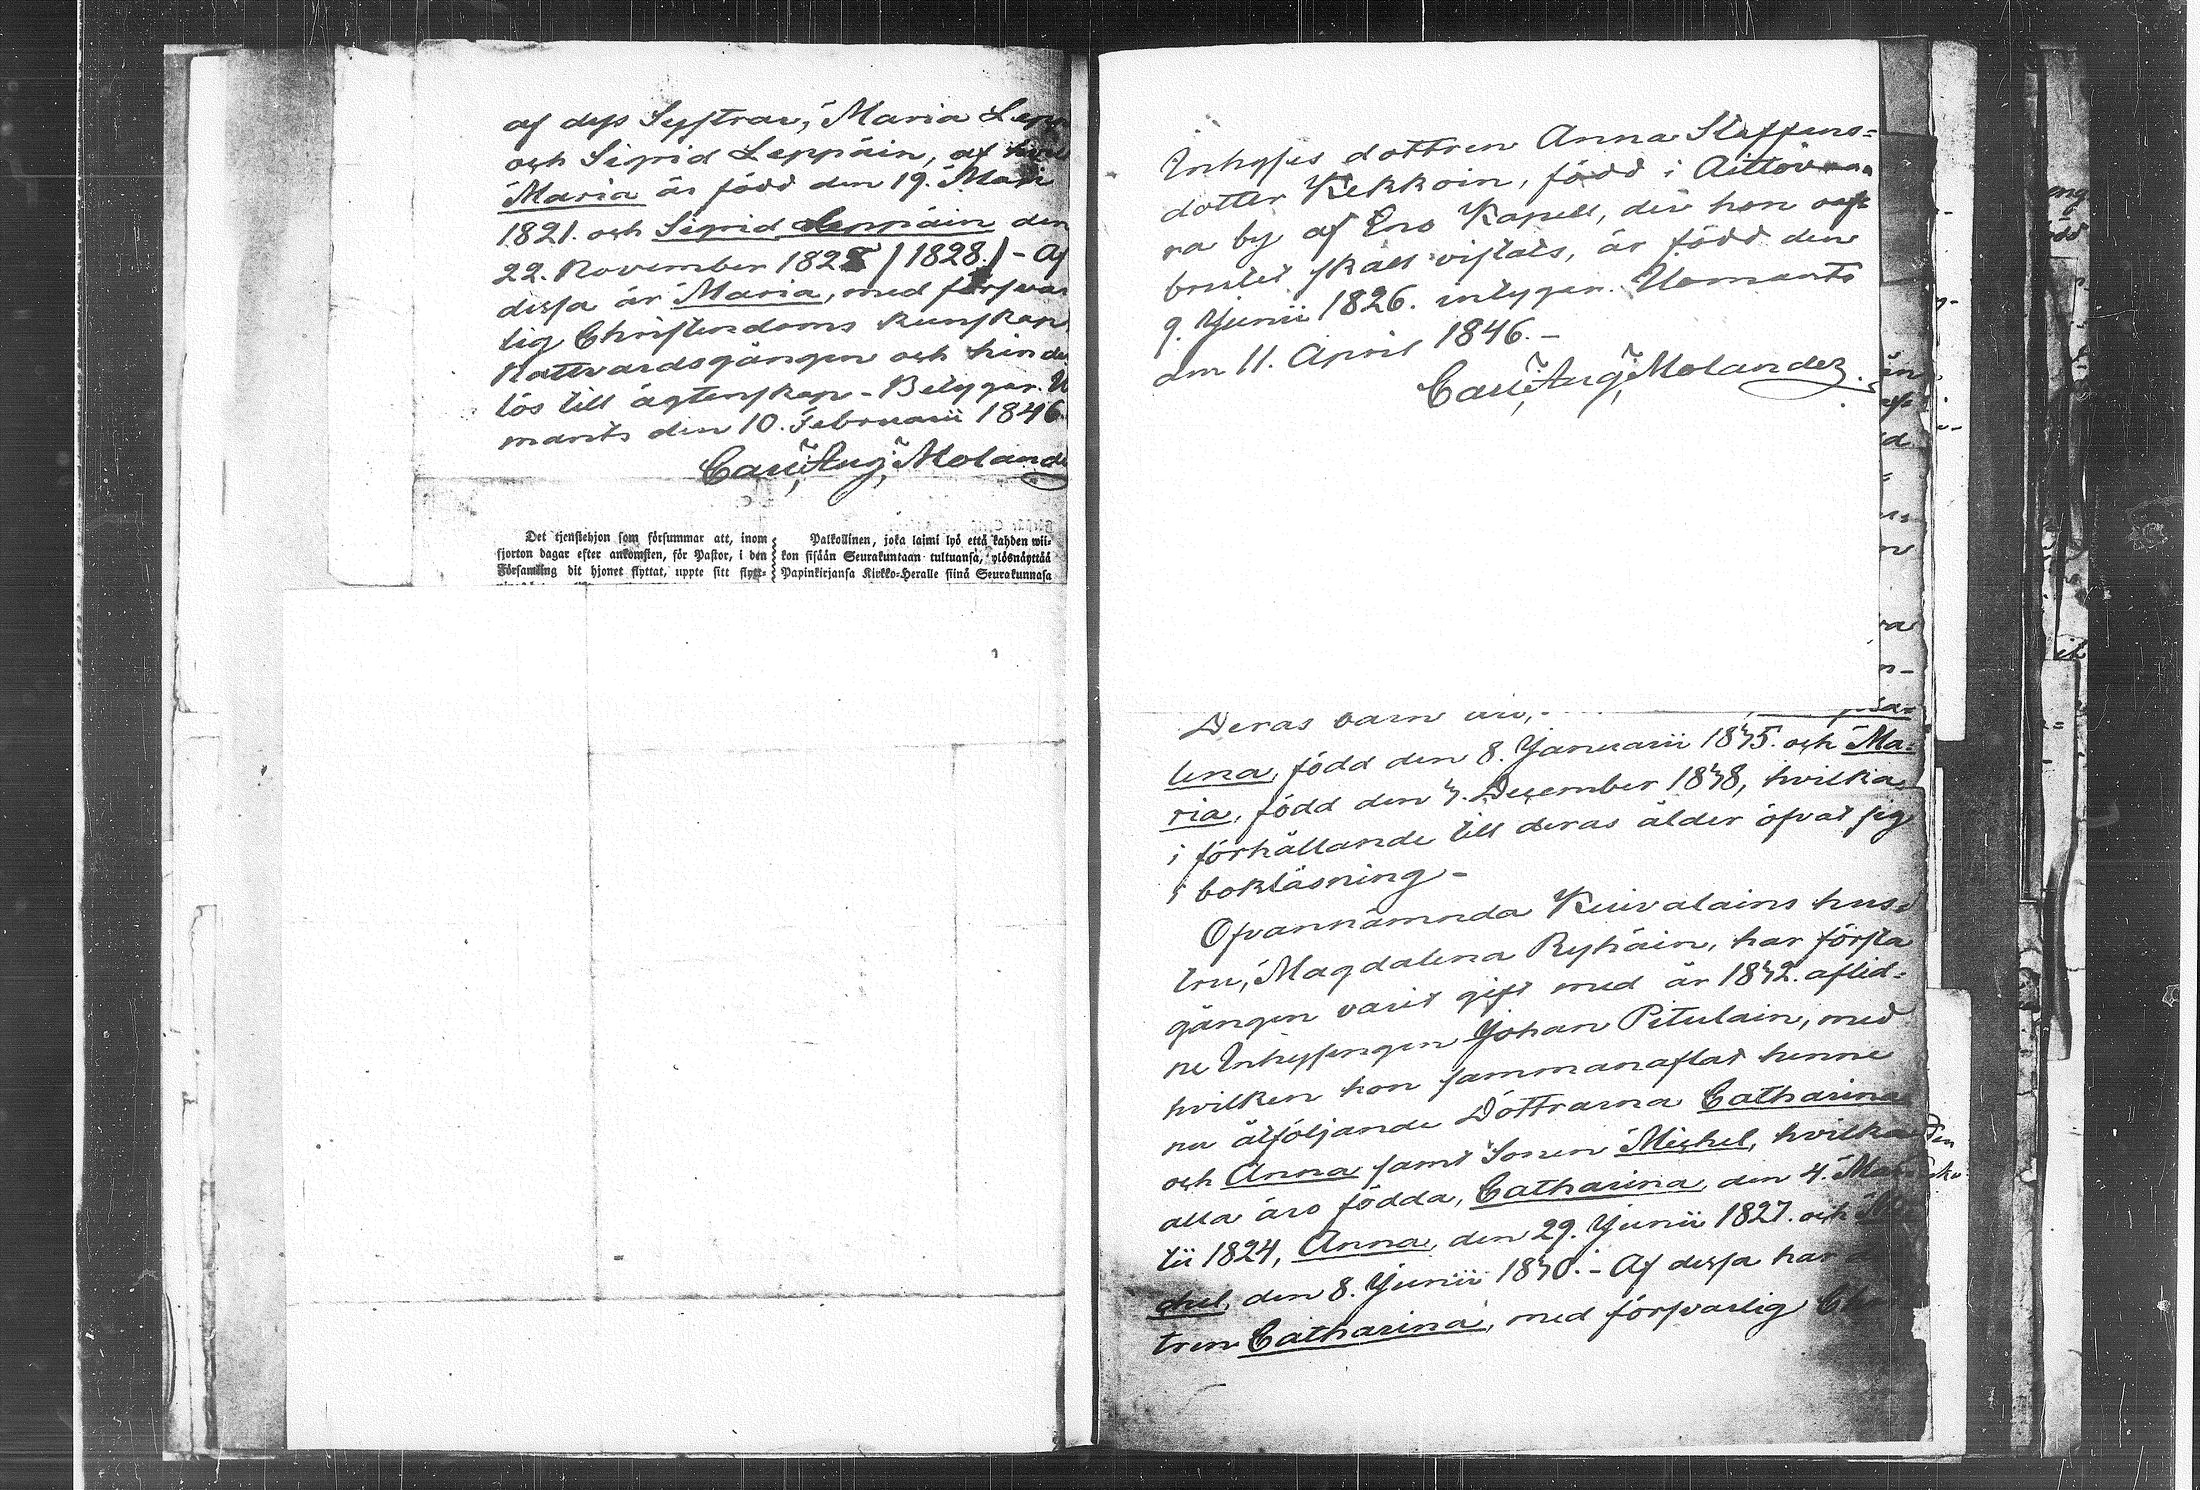 af dess Systrar, Maria Lepp
och Sigrid Leppäin, af hvil
Maria är född den 19. Martii
1821. och Sigrid Leppäin den
22. November 1828 /1828./ - Af
dessa är Maria, med försvar
lig Christendoms kunskap
Nattvardsgången och hinder
lös till ägtenskap - Betygar. U
mants den 10. Februarii 1846.
Carl Aug. Molande
Det tjenstehjon som försummar att, inom
fjorton dagar efter ankomsten, för Pastor, i den
Församling dit hjonet flyttat, uppte sitt flytt-
Palkollinen, joka laimi lyö että kahden wii-
kon sisään Seurakuntaan tultuansa, ylösnäyttää
Papinkirjansa Kirkko-Heralle siinä Seurakunnasa
Inhyses dottren Anna Staffens=
dotter Kekkoin, född i Aittova
ra by af Eno Kapell, der hon oaf=
brutet skall vistats, är född den
9. Junii 1826. intygar. Ilomants
den 11. April 1846. -
Carl Aug. Molander.
Deras barn äro,
lena, född den 8. Januarii 1835. och Ma=
ria, född den 3. December 1838, hvilka
i förhållande till deras ålder öfvat sig
i bokläsning -
Ofvannämnda Kuivalains hus=
tru, Magdalena Ryhäin, har första
gången varit gift med år 1832. aflid=
ne Inhysingen Johan Pitulain, med
hvilken hon sammanaflat henne
nu åtföljande Döttrarna Catharina
och Anna samt Sonen Michel, hvilka
alla äro födda, Catharina, den 4. Mar
tii 1824, Anna, den 29. Junii 1827. och Mi
chel, den 8. Junii 1830. - Af dessa har d
tren Catharina, med försvarlig Ch